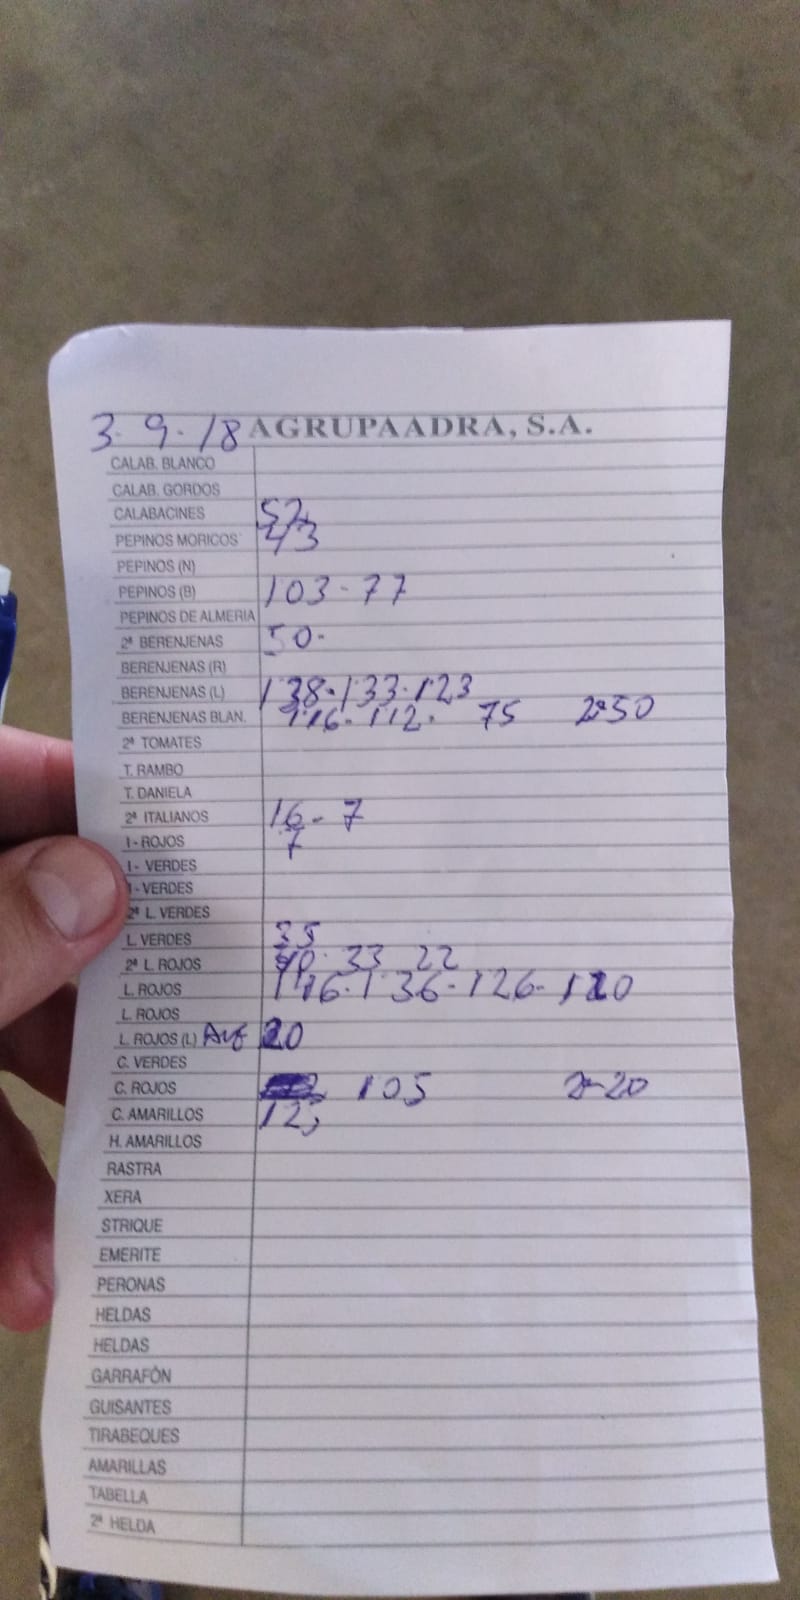 3-9-18 AGRUPAADRA, S.A.
CALAB. BLANCO
CALAB. GORDOS
CALABACINES 52
PEPINOS MORICOS 43
PEPINOS (N)
PEPINOS (B) 103-77
PEPINOS DE ALMERIA
2ª BERENJENAS 50-
BERENJENAS (R)
BERENJENAS (L) 138-133-123
BERENJENAS BLAN. 116-112- 75 2ª50
2ª TOMATES
T. RAMBO
T. DANIELA
2ª ITALIANOS 16-7
I - ROJOS 7
I - VERDES
I - VERDES
2ª L. VERDES
L. VERDES 35
2ª L. ROJOS 40-33 22
L. ROJOS 146-136-126-120
L. ROJOS
L. ROJOS (L) 20
C. VERDES
C. ROJOS 105 2ª-20
C. AMARILLOS 125
H. AMARILLOS
RASTRA
XERA
STRIQUE
EMERITE
PERONAS
HELDAS
HELDAS
GARRAFÓN
GUISANTES
TIRABEQUES
AMARILLAS
TABELLA
2ª HELDA